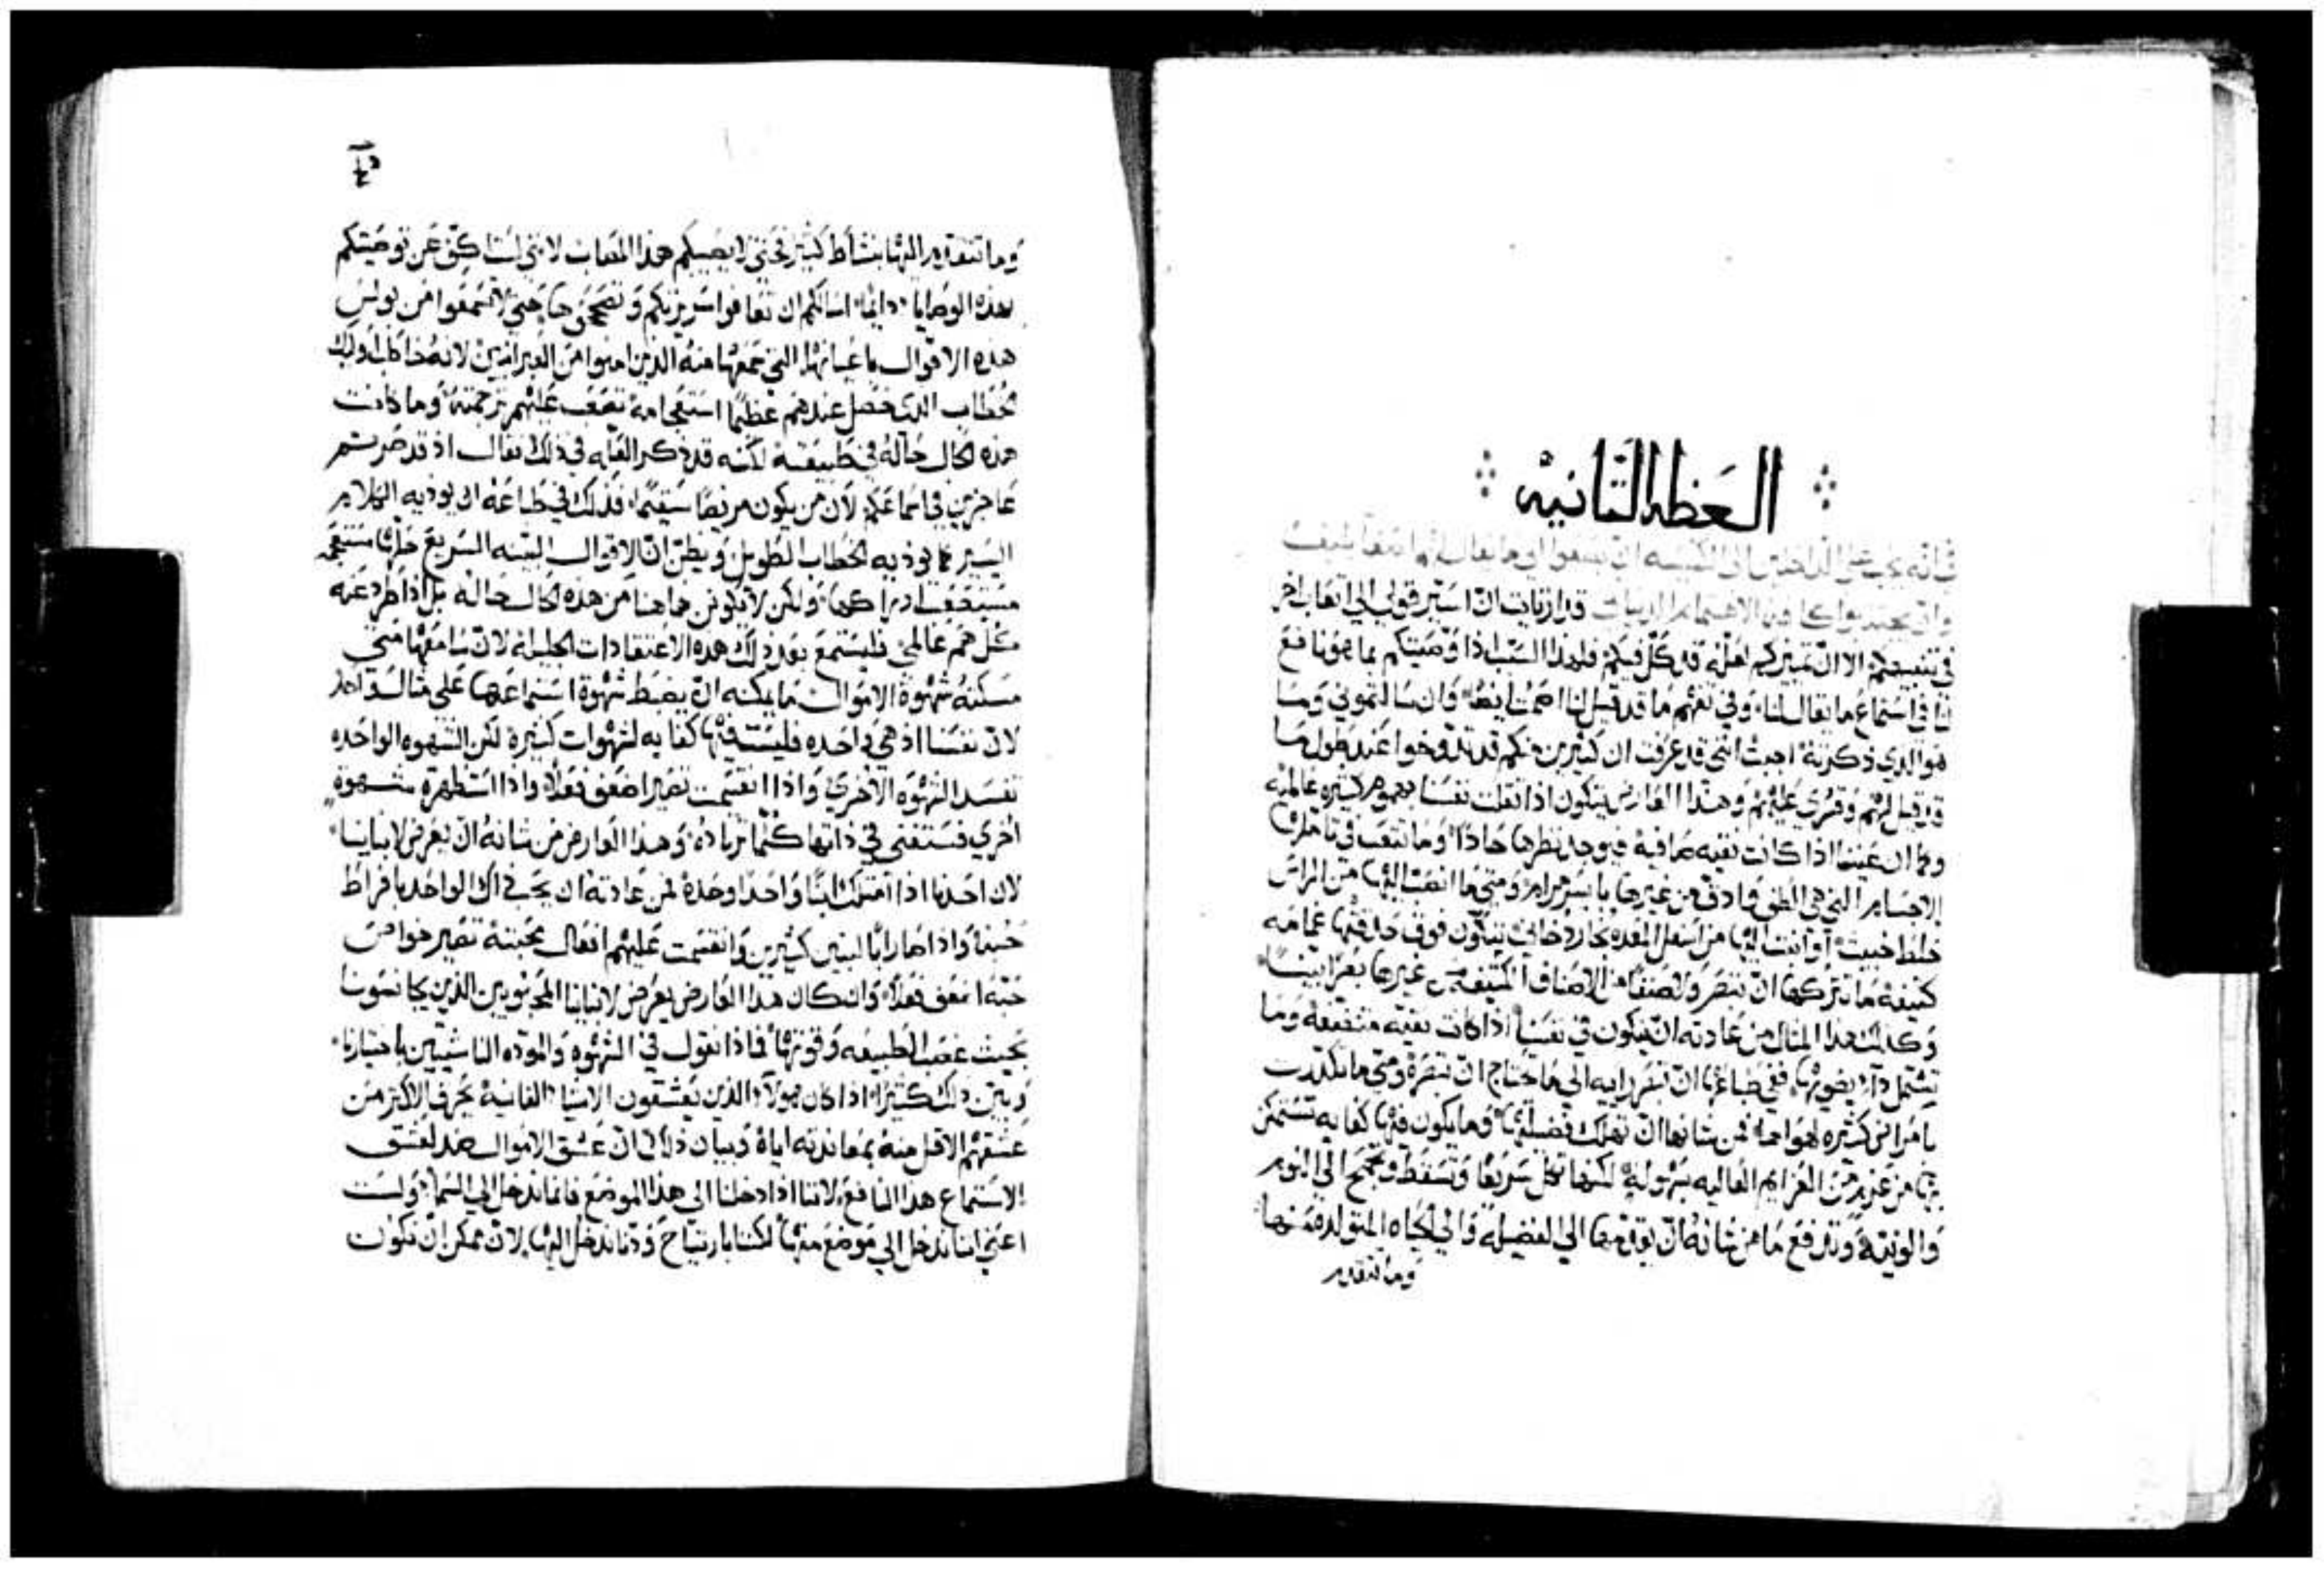 العظه الثانيه
في انه يجب على الداخلين الى الكنيسه ان يسمعوا الى ما يقال
وان يجتهدوا كافه الاهتمام قد ارتايت ان استر قولي الى اتعاب اخر
في تنبيهكم الا ان تميزكم اهله قد كل فيكم فلهذا السبب اذا اوصيتكم بما هو نافع
لنا في استماع ما يقال لنا وفي تفهم ما قد قيل لنا ايضا وان سالتموني وما
هو الذي ذكرته اجبت انني قد عرفت ان كثيرين منكم قد تدوخوا عند طول ما
قد قيل لهم وقرى عليهم وهذا العارض يتكون اذا ثقلت نفسنا بهموم كثيره عالميه
وكما ان عيننا اذا كانت نقيه صافيه فيوجد نظرها حادا وما تتعب في تاملها
الاجسام التي هي الطف وادق من غيرها بايسر مرام ومتى ما انصب اليها من الراس
خلط خبيث او انبث اليها من اسفل المعده بخار دخاني يتكون فوق حدقتها غمامه
كثيفه ما تتركها ان تبصر ولا صنفا من الاصناف الكثيفه من غيرها بصرا بينا
وكذلك هذا المثال من عادته ان يتكون في نفسنا اذا كانت نقيه متنقيه وما
تشتمل داء يضويها ففي طباعها ان تبصر رايه الى ما تحتاج ان تبصره ومتى ما تكدرت
بامراض كثيره لهواها فمن شانها ان تهلك فضيلتها وما يكون فيها كفايه تستمكن
بها من عزيمه من العزايم العاليه بسهوله لكنها تكل سريعا وتسقط وتجمح الى النوم
والونيه وتدفع ما من شانه ان يقدمها الى الفضيله والى الحياه المتولده منها
وما تتقدم
وما تتقدم اليها بنشاط كثير فحتى لا يصيبكم هذا المصاب لانني لست اكف عن توصيتكم
بهذه الوصايا دايما اسالكم ان تعافوا سريرتكم وتصححوها حتى لا تسمعوا من بولس
هذه الاقوال باعيانها التي سمعها منه الذين امنوا من العبرانيين لانه خاطب اولئك
خطاب الذي حصل عندهم عظيما استفحامه تصعب عليهم ترجمته وما كانت
هذه الحال حاله في طبيعته لكنه قد ذكر العله في ذلك فقال اذ قد صرتم
عاجزين في اسماعكم لان من يكون مريضا سقيما فذلك في طباعه ان يوذيه الكلام
اليسير كما يوذيه الخطاب الطويل ويظن ان الاقوال البينه السريع حلها مستفحمه
مستصعب ادراكها ولكن لا يكونن هاهنا من هذه الحال حاله بل اذا طرد عنه
كل هم عالمي فليستمع بعد ذلك هذه الاعتقادات الجليله لان سامعها متى
مسكته شهوة الاموال ما يمكنه ان يضبط شهوة استماعها على مثال سواها
لان نفسنا اذ هي واحده فليست فيها كفايه لشهوات كثيره لكن الشهوه الواحده
تفسد الشهوه الاخرى واذا انقسمت تصير اضعف فعلا واذا استظهرت شهوة
اخرى فستفني في ذاتها كلما تزداده وهذا العارض من شانه ان يعرض لابناينا
لان احدنا اذا امتلك ابنا واحدا وحده فمن عادته ان يحب ذاك الواحد بافراط
حبه واذا صار ابا لبنين كثيرين وانقسمت عليهم افعال محبته تصير خواص
حبه اضعف فعلا وان كان هذا العارض يعرض لابناينا المحبوبين الذين يجانسونا
بحيث غصب الطبيعه وقوتها فماذا نقول في الشهوه والموده الناشيين باختيارنا
وبين ذلك كثيرا اذا كان هولاء الذين يعشقون الاشيا الفانيه يجرف الاكثر من
عشقهم الاقل منه بمعاندته اياه وبيان ذلك ان عشق الاموال ضد لعشق
الاستماع هذا النافع لاننا اذا دخلنا الى هذا الموضع فانما ندخل الى السما ولست
اعني اننا ندخل الى موضع منها لكننا بارتياح ودنا ندخل اليها لان ممكن ان نكون